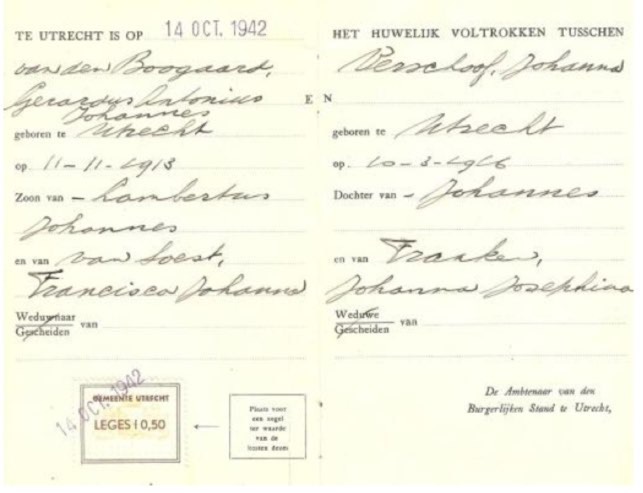 TE UTRECHT IS OP 14 OCT. 1942
van den Boogaard,
Gerardus Antonius
Johannes
geboren te Utrecht
op 11-11-1913
Zoon van - Lambertus
Johannes
en van van Soest,
Francisca Johanna
Weduwnaar
Gescheiden van
GEMEENTE UTRECHT
LEGES f 0,50
14 OCT. 1942
←
Plaats voor
een zegel
ter waarde
van de
HET HUWELIJK VOLTROKKEN TUSSCHEN
Verschoof, Johanna
EN
geboren te Utrecht
op 10-3-1916
Dochter van - Johannes
en van Franken,
Johanna Josephina
Weduwe
Gescheiden van
De Ambtenaar van den
Burgerlijken Stand te Utrecht,